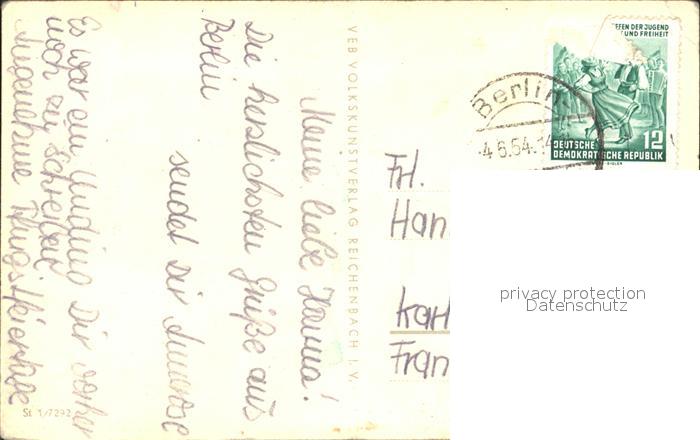 Meine liebe Hanna!
Die herzlichsten Grüße aus
Berlin
sendet Dir Annerose
Es war ein Unding Dir vorher
noch zu schreiben
Angenehme Pfingstfeiertage
VEB VOLKSKUNSTVERLAG REICHENBACH I. V.
St 1/7292
EFFEN DER JUGEND
UND FREIHEIT
12
DEUTSCHE
DEMOKRATISCHE REPUBLIK
Berlin
4.6.54.-14
Frl.
Han
Karl
Fran
privacy protection
Datenschutz